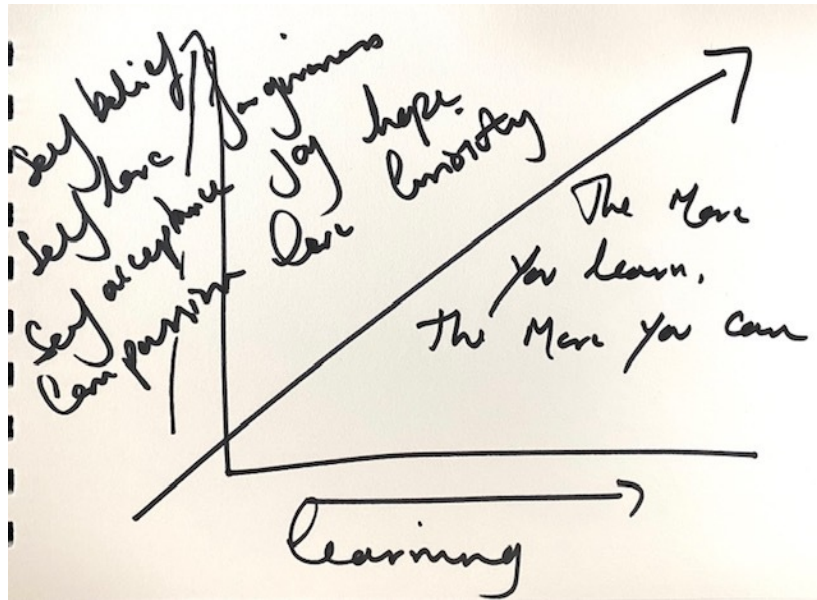 Self belief
Self love
Self acceptance
Compassion
forgiveness
Joy hope.
love Curiosity
The More
You learn,
The More You Can
learning